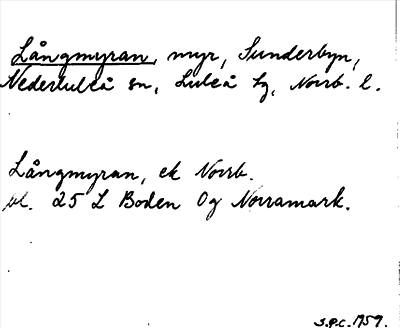 Långmyran, myr, Sunderbyn,
Nederluleå sn, Luleå tg, Norrb. l.
Långmyran, ek Norrb.
bl. 25 L Boden Og Norramark.
S.P.C. 1959.